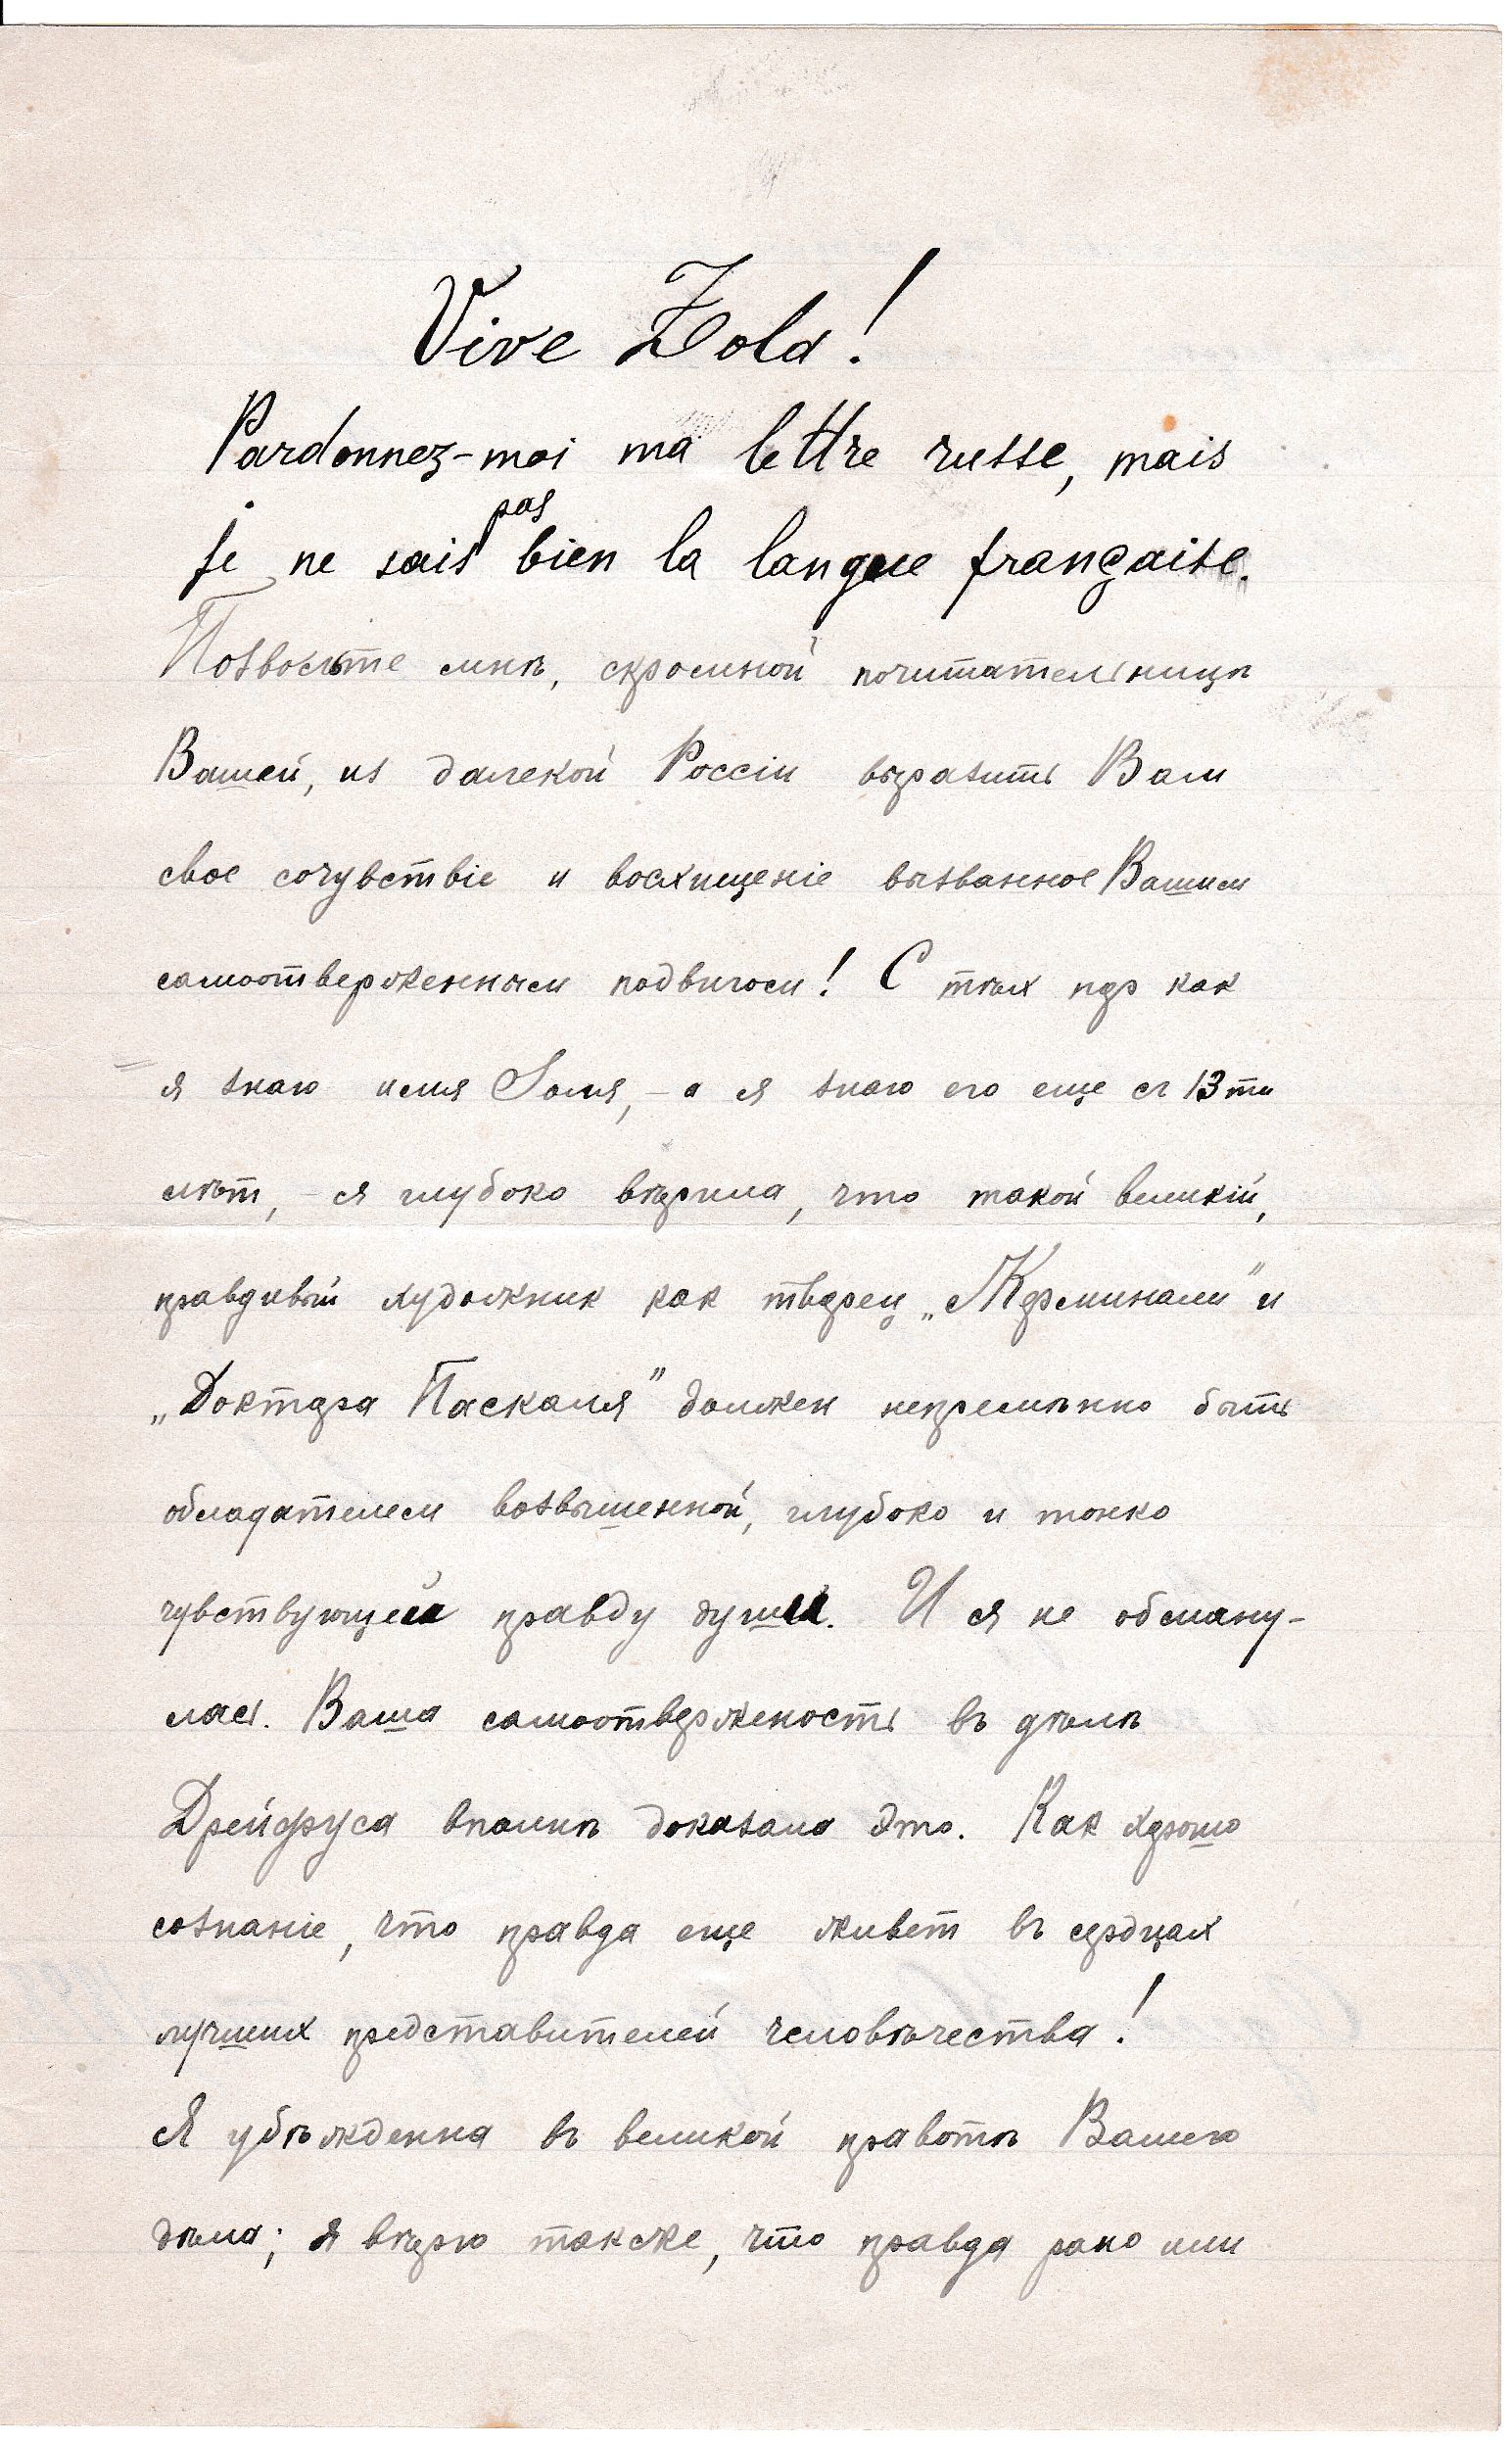 Vive Zola!
Pardonnez-moi ma lettre russe, mais
je ne sais pas bien la langue française.
Позвольте мнѣ, скромной почитательницѣ
Вашей, из далекой Россіи выразить Вам
свое сочувствіе и восхищеніе вызванное Вашим
самоотверженным подвигом! С тѣх пор как
я знаю имя Золя, – а я знаю его еще съ 13ти
лѣт, – я глубоко вѣрила, что такой великій,
правдивый художник как творец „Жерминали" и
„Доктора Паскаля" должен непремѣнно быть
обладателем возвышенной, глубоко и тонко
чувствующей правду души. И я не обману-
лась. Ваша самоотверженость въ дѣлѣ
Дрейфуса вполнѣ доказала это. Как хорошо
сознаніе, что правда еще живет въ сердцах
лучших представителей человѣчества!
Я убѣжденна въ великой правотѣ Вашего
дѣла; я вѣрю также, что правда рано или